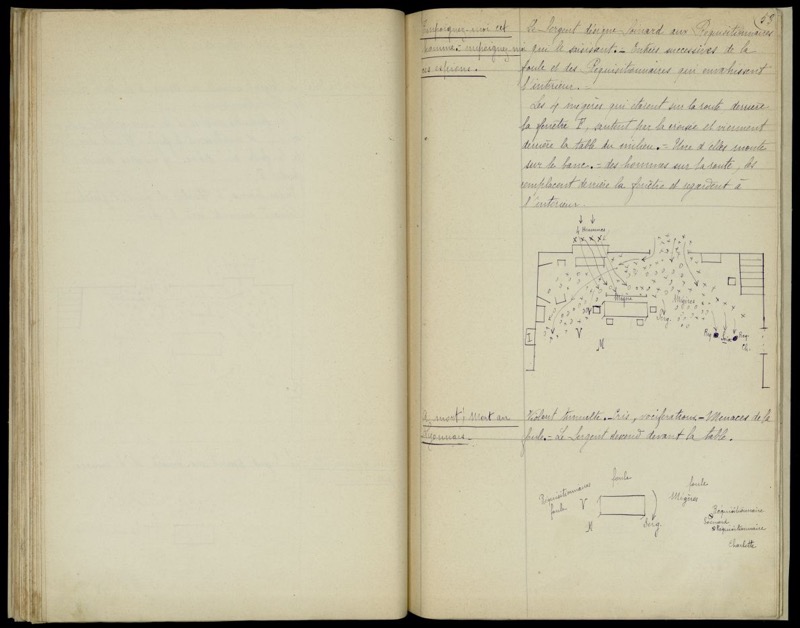 53
Empoignez-moi cet
homme - empoignez moi
ces espions.
Le Sergent désigne Loinard aux Réquisitionnaires
qui le saisissent. - Entrées successives de la
foule et des Réquisitionnaires qui envahissent
l'intérieur. -
Les 4 mégères qui étaient sur la route derrière
la fenêtre F, sautent par la croisée et viennent
derrière la table du milieu. - Une d'elles monte
sur le banc. - des hommes sur la route, les
remplacent derrière la fenêtre et regardent à
l'intérieur.
4 Hommes
Mégère
Mégères
Serg.
V
M
Req
Req.
Ch.
A mort! Mort au
Lyonnais -
Violent tumulte. - Cris, vociférations - Menaces de la
foule. - Le Sergent descend devant la table.
Réquisitionnaires
foule
foule
foule
Mégères
V
M
Serg
Réquisitionnaire
Loinard
Réquisitionnaire
Charlotte